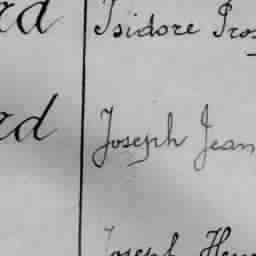 rd Isidore Pros
rd Joseph Jean
Joseph Hen